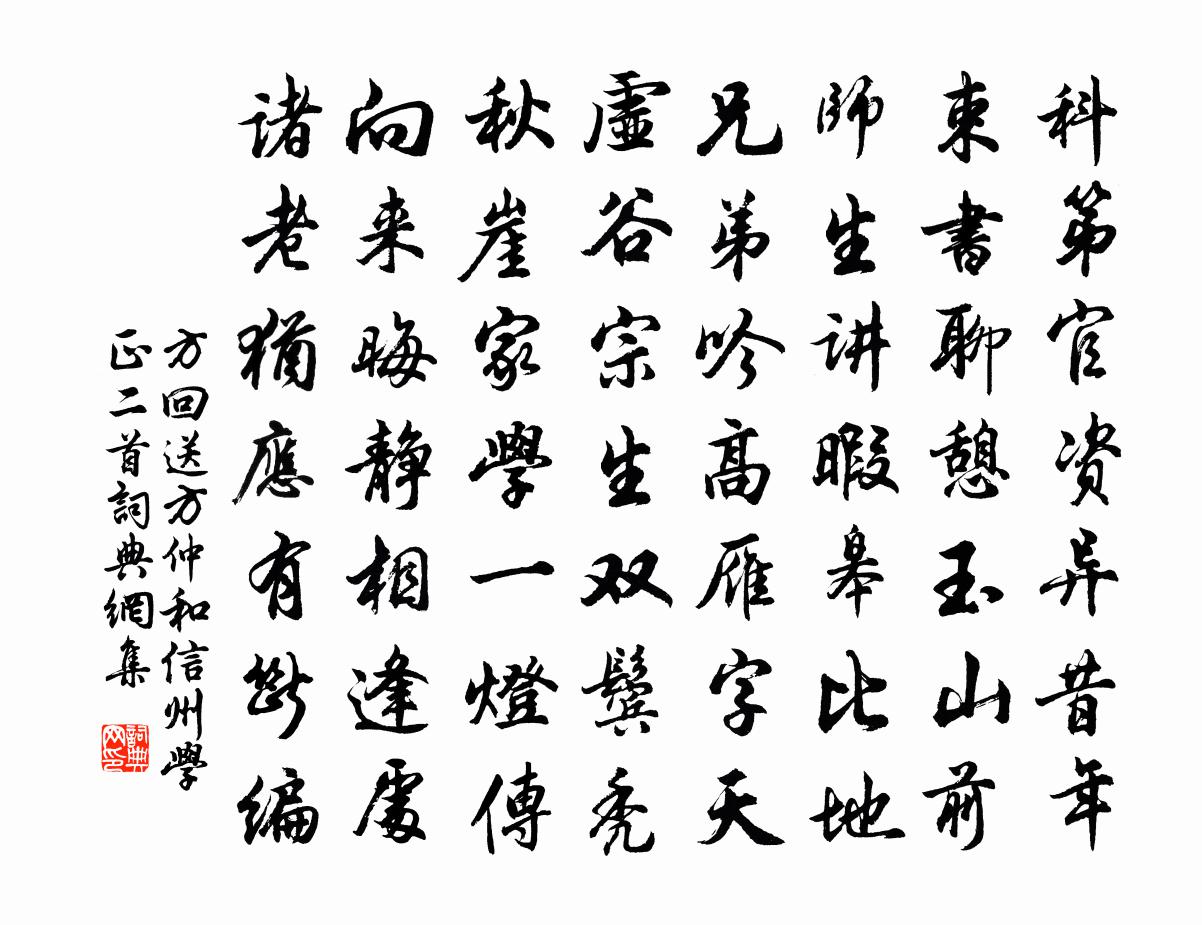 科第官资异昔年
束書聊憩玉山前
師生讲暇皋比地
兄弟吟高雁字天
虛谷宗生双鬓秃
秋崖家學一燈傳
向来晦静相逢處
诸老猶應有斷编
方回送方仲和信州學
正二首詞典網集
詞典网印